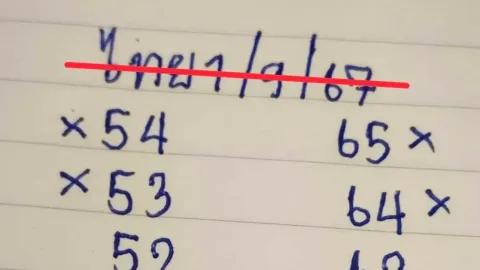 ไทย 1/9/67
×54 65×
×53 64×
52